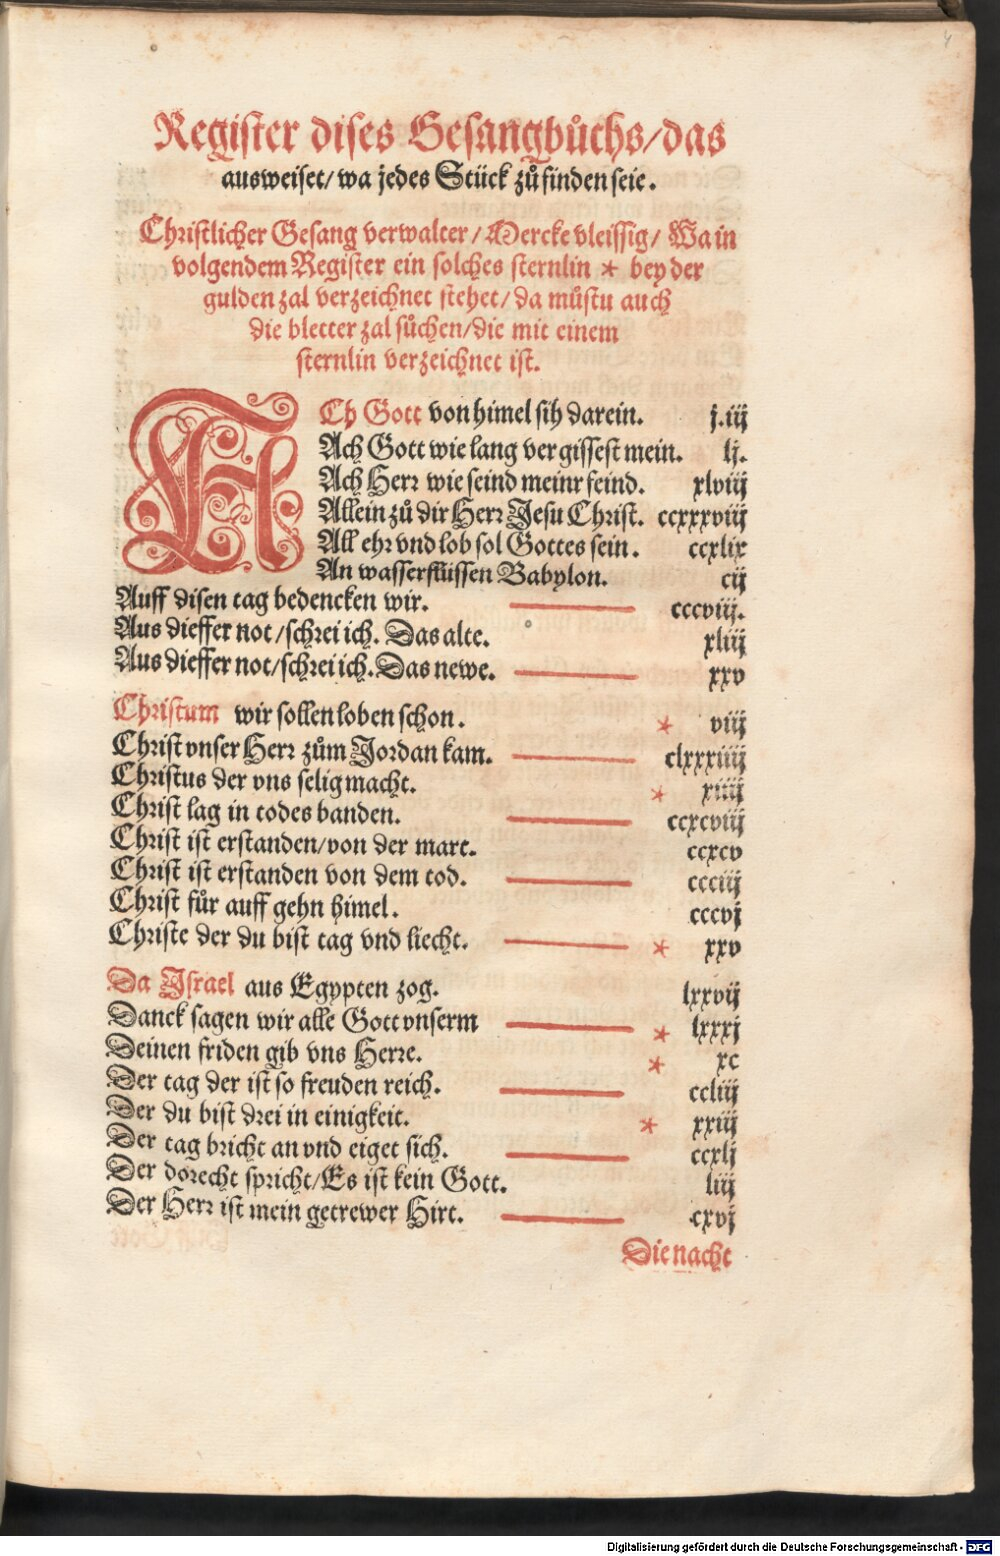 4
Register dises Gesangbůchs/das
ausweiset/wa jedes Stück zů finden seie.
Christlicher Gesang verwalter/Mercke vleissig/Wa in
volgendem Register ein solches sternlin * bey der
gulden zal verzeichnet stehet/da můstu auch
die bletter zal sůchen/die mit einem
sternlin verzeichnet ist.
ACh Gott von himel sih darein. j.iij
Ach Gott wie lang vergissest mein. lj.
Ach Herr wie seind meinr feind. xlviij
Allein zů dir Herr Jesu Christ. ccxxxviij
All ehr vnd lob sol Gottes sein. ccxlix
An wasserflüssen Babylon. cij
Auff disen tag bedencken wir. cccviij.
Aus dieffer not/schrei ich. Das alte. xliij
Aus dieffer not/schrei ich. Das newe. xxv
Christum wir sollen loben schon. * viij
Christ vnser Herr zům Jordan kam. clxxxiiij
Christus der vns selig macht. * xiiij
Christ lag in todes banden. ccxcviij
Christ ist erstanden/von der mart. ccxcv
Christ ist erstanden von dem tod. ccciij
Christ fůr auff gehn himel. cccvj
Christe der du bist tag vnd liecht. * xxv
Da Israel aus Egypten zog. lxxvij
Danck sagen wir alle Gott vnserm * lxxxj
Deinen friden gib vns Herre. * xc
Der tag der ist so freuden reich. ccliij
Der du bist drei in einigkeit. * xxiij
Der tag bricht an vnd eiget sich. ccxlj
Der dorecht spricht/Es ist kein Gott. liij
Der Herr ist mein getrewer Hirt. cxvj
Die nacht
Digitalisierung gefördert durch die Deutsche Forschungsgemeinschaft - DFG